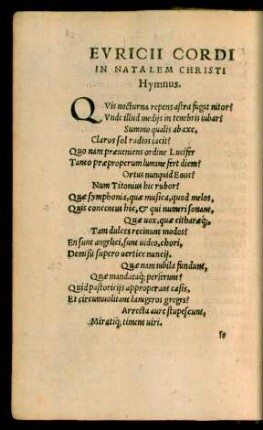 EVRICII CORDI
IN NATALEM CHRISTI
Hymnus.
QVis nocturna repens astra fugat nitor?
Vnde illud medijs in tenebris iubar?
Summo qualis ab axe,
Claros sol radios iacit?
Quo nam præueniens ordine Lucifer
Tanto præproperum lumine fert diem?
Ortus nunquid Eous?
Num Titonius hic rubor?
Quæ symphonia, quæ musica, quod melos,
Quis concentus hic, & qui numeri sonant,
Quæ uox, quæ citharæq;,
Tam dulces recinunt modos?
En sunt angelici, sunt uideo, chori,
Demissi supero uertice nuncij.
Quæ nam iubila fundunt,
Quæ mandataq; perferunt?
Quid pastoricijs approperant casis,
Et circumuolitant lanigeros greges?
Arrecta aure stupescunt,
Miratiq; timent uiri.
se